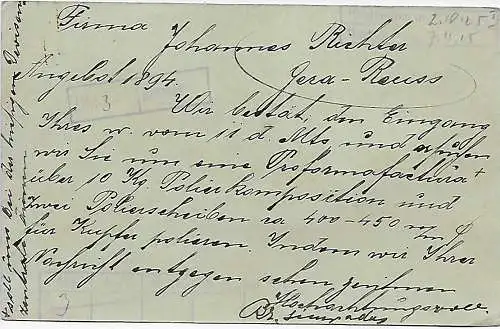 Firma
Johannes Richter
Gera-Reuss
Angebot 1894.
Wir bestät. den Eingang
Ihres w. vom 11 d. Mts. und
wir Sie um eine Proformafactura +
über 10 Kg. Polierkomposition und
Zwei Polierscheiben ca 400-450 m/m
für Kupfer polieren. Indem wir Ihrer
Nachricht entgegen sehen zeichnen
Hochachtungsvoll
Br.
3
3
+ soll uns bei der hiesigen Devisen
zentrale dienen